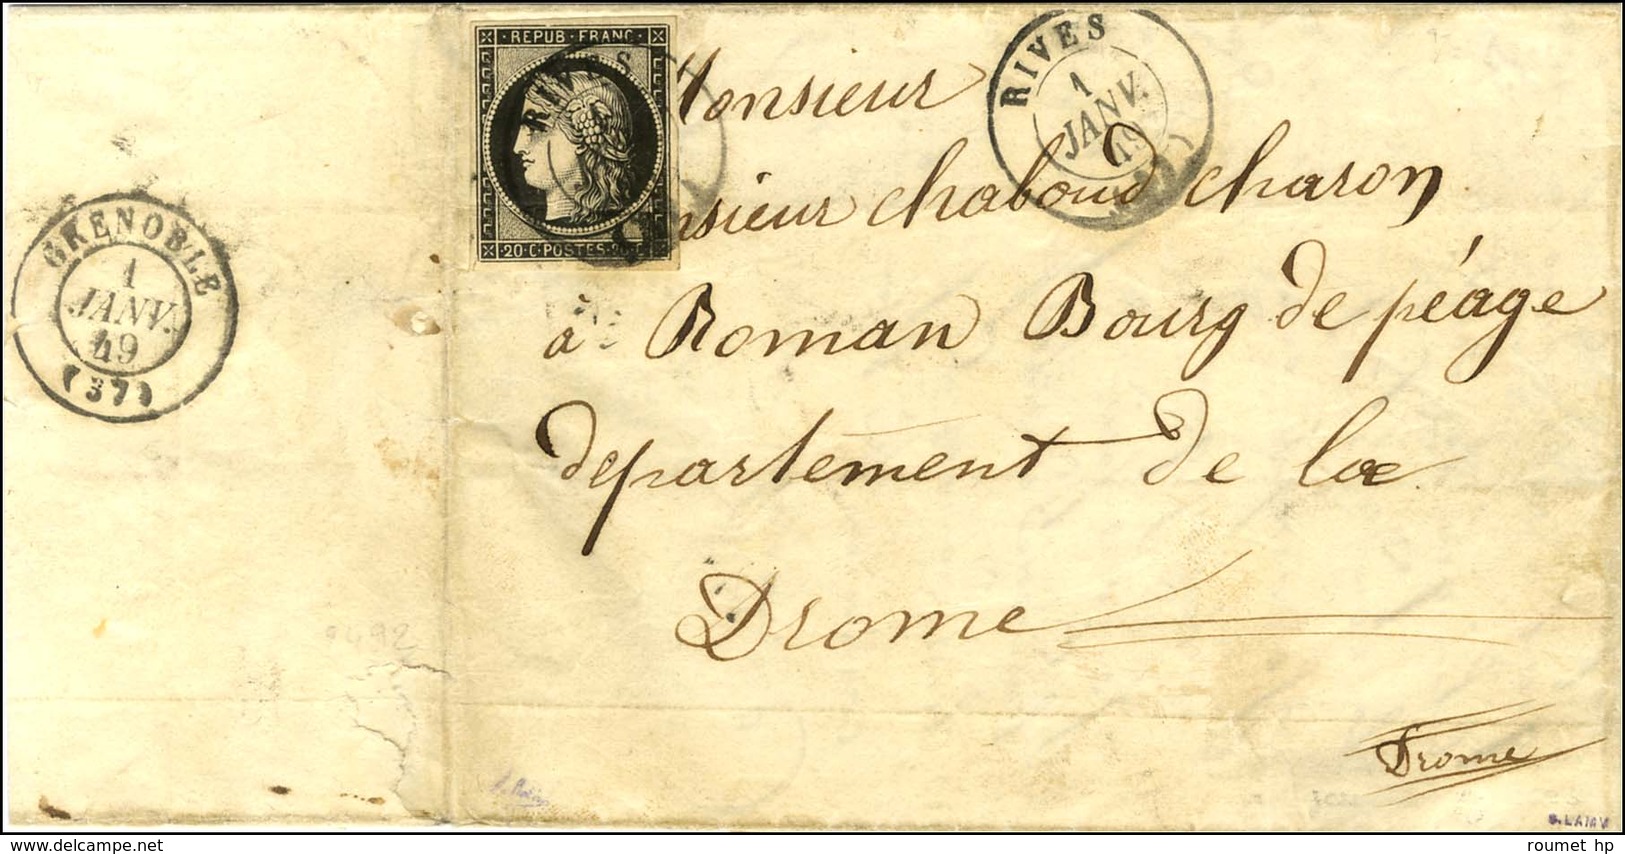 REPUB·FRANC·
RIVES
20·C·POSTES·20·C
RIVES
1
JANV.
49
GRENOBLE
1
JANV.
49
(37)
Monsieur
Monsieur chaboud charon
à Roman Bourg de péage
département de la
Drome
Drome
9492
roumet hp